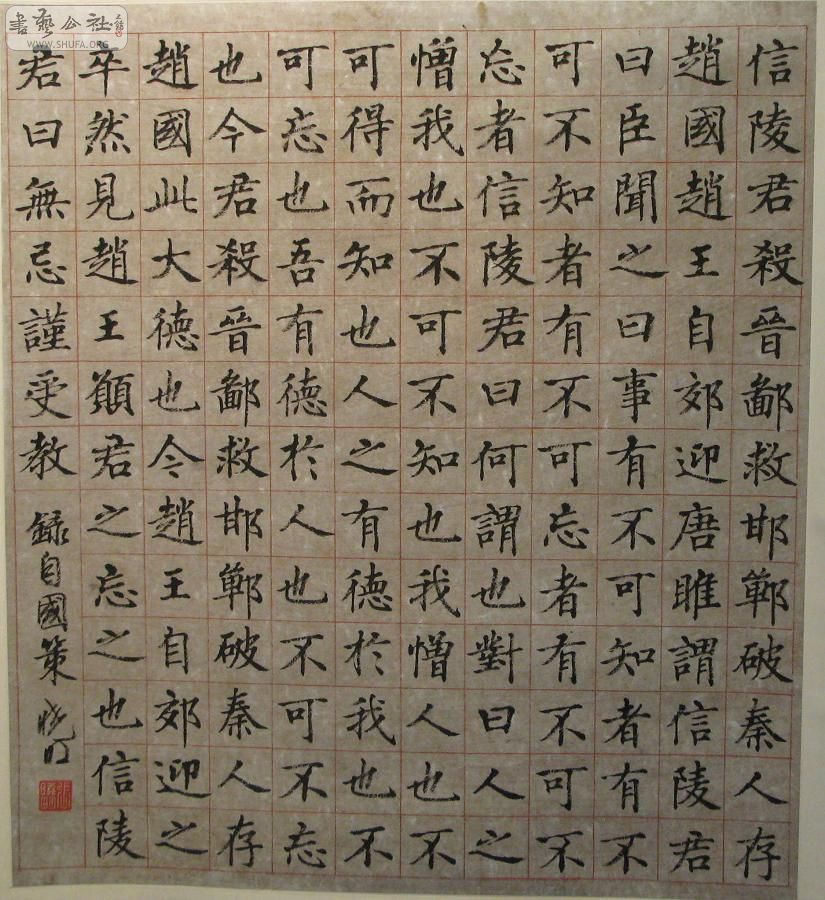 書藝公社
WWW.SHUFA.ORG
信陵君殺晉鄙救邯鄲破秦人存
趙國趙王自郊迎唐雎謂信陵君
曰臣聞之曰事有不可知者有不
可不知者有不可忘者有不可不
忘者信陵君曰何謂也對曰人之
憎我也不可不知也我憎人也不
可得而知也人之有德於我也不
可忘也吾有德於人也不可不忘
也今君殺晉鄙救邯鄲破秦人存
趙國此大德也今趙王自郊迎之
卒然見趙王願君之忘之也信陵
君曰無忌謹受教 錄自國策